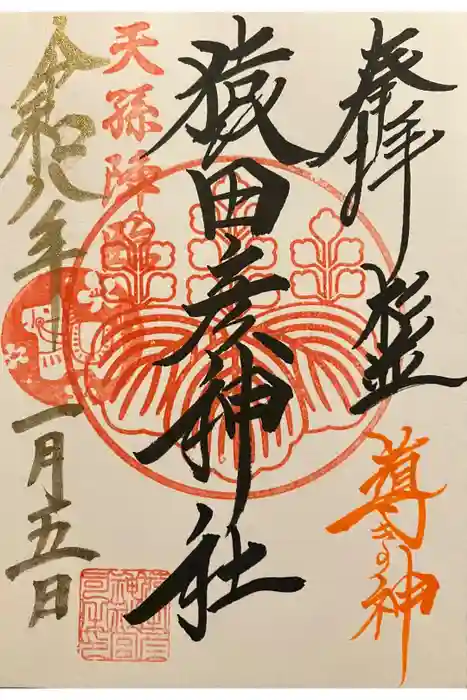 奉拝
杉並
導きの神
猿田彦神社
天孫降臨
令和八年
一月五日